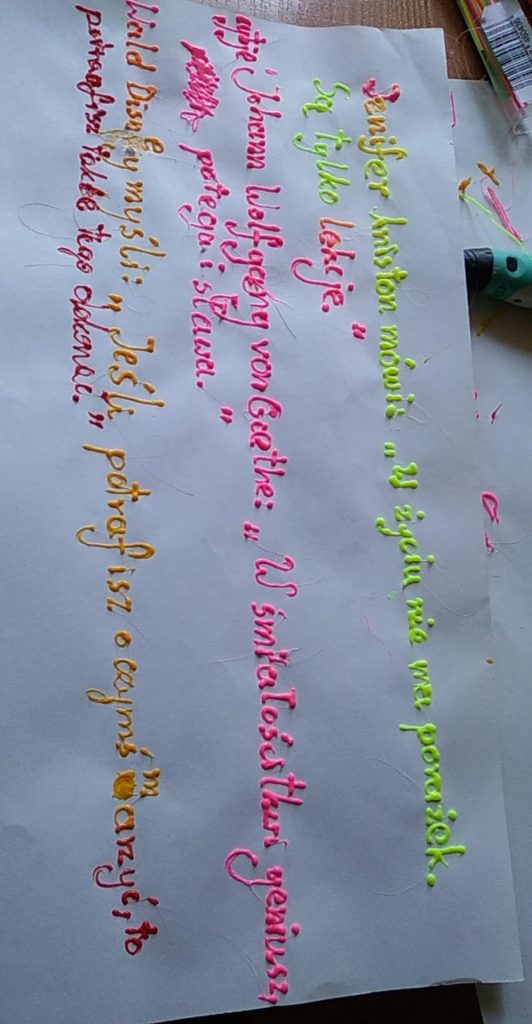 Jenifer Aniston mówi: „W życiu nie ma porażek.
Są tylko lekcje. "
Johann Wolfgang von Goethe: „W śmiałości tkwi geniusz,
potęga i sława. "
Wald Disney myśli: „Jeśli potrafisz o czymś marzyć, to
potrafisz także tego dokonać. "